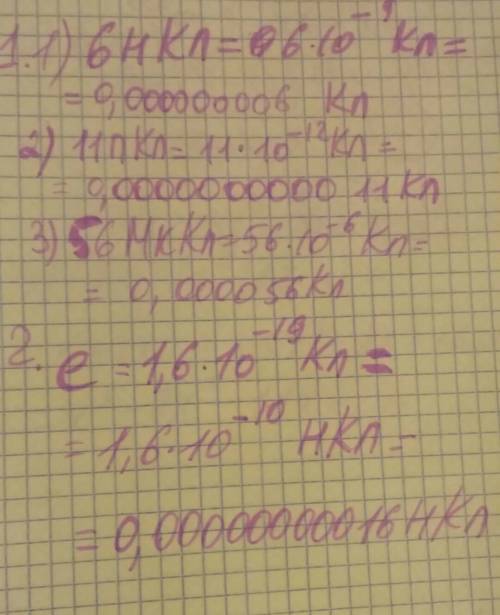 1.1) 6 нКл = 6·10⁻⁹ Кл =
= 0,000000006 Кл
2) 11пКл = 11·10⁻¹²Кл =
= 0,0000000000 11 Кл
3) 56 мкКл = 56·10⁻⁶ Кл =
= 0,000056Кл
2. e = 1,6·10⁻¹⁹ Кл =
= 1,6·10⁻¹⁰ нКл =
= 0,00000000016 нКл